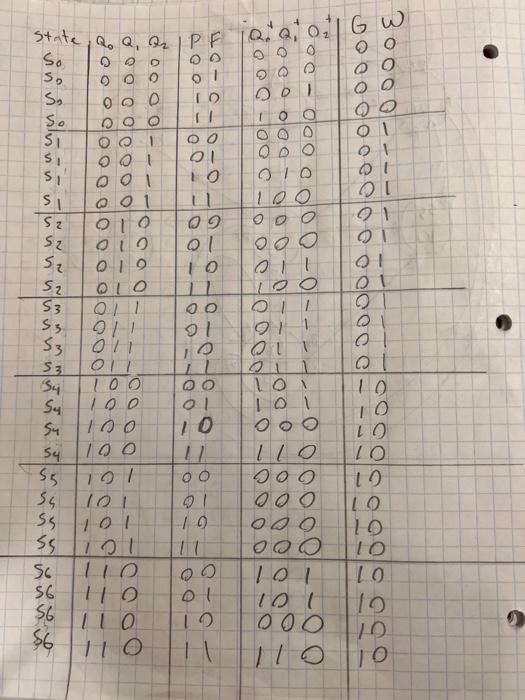 State Q₀ Q₁ Q₂ P F Q₀⁺ Q₁⁺ Q₂⁺ G W
S₀ 0 0 0 0 0 0 0 0 0 0
S₀ 0 0 0 0 1 0 0 0 0 0
S₀ 0 0 0 1 0 0 0 1 0 0
S₀ 0 0 0 1 1 1 0 0 0 0
S1 0 0 1 0 0 0 0 0 0 1
S1 0 0 1 0 1 0 0 0 0 1
S1 0 0 1 1 0 0 1 0 0 1
S1 0 0 1 1 1 1 0 0 0 1
S2 0 1 0 0 0 0 0 0 0 1
S2 0 1 0 0 1 0 0 0 0 1
S2 0 1 0 1 0 0 1 1 0 1
S2 0 1 0 1 1 1 0 0 0 1
S3 0 1 1 0 0 0 1 1 0 1
S3 0 1 1 0 1 0 1 1 0 1
S3 0 1 1 1 0 0 1 1 0 1
S3 0 1 1 1 1 0 1 1 0 1
S4 1 0 0 0 0 1 0 1 1 0
S4 1 0 0 0 1 1 0 1 1 0
S4 1 0 0 1 0 0 0 0 1 0
S4 1 0 0 1 1 1 1 0 1 0
S5 1 0 1 0 0 0 0 0 1 0
S5 1 0 1 0 1 0 0 0 1 0
S5 1 0 1 1 0 0 0 0 1 0
S5 1 0 1 1 1 0 0 0 1 0
S6 1 1 0 0 0 1 0 1 1 0
S6 1 1 0 0 1 1 0 1 1 0
S6 1 1 0 1 0 0 0 0 1 0
S6 1 1 0 1 1 1 1 0 1 0